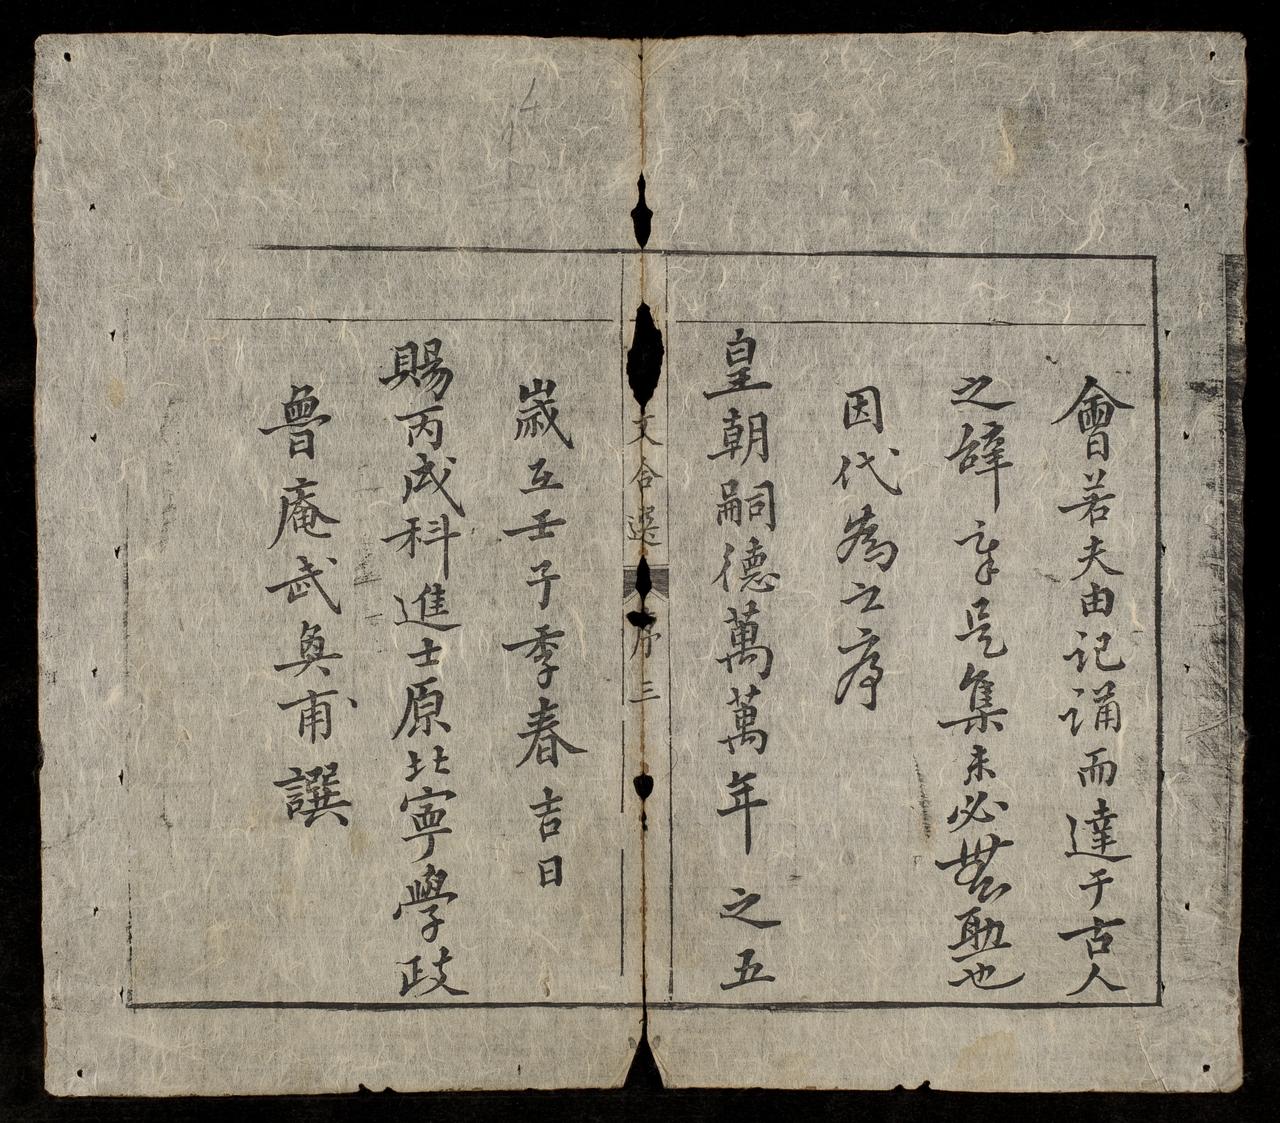 會若夫由記誦而達于古人
之辭章是集未必無助也
因代為之序
皇朝嗣德萬萬年之五
文合選
序 三
歲在壬子季春吉日
賜丙戌科進士原北寧學政
魯庵武奐甫譔